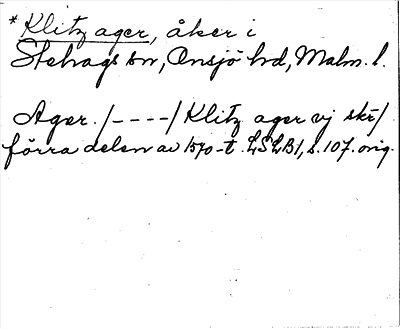 *Klitz ager, åker i
Stehags sn, Onsjö hd, Malm. l.
Ager. /----/ Klitz ager vj skr/
förra delen av 1570-t. LSLB1, s. 107. orig.